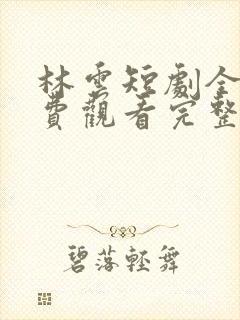 林雲短劇全
費觀看完整
碧落輕舞